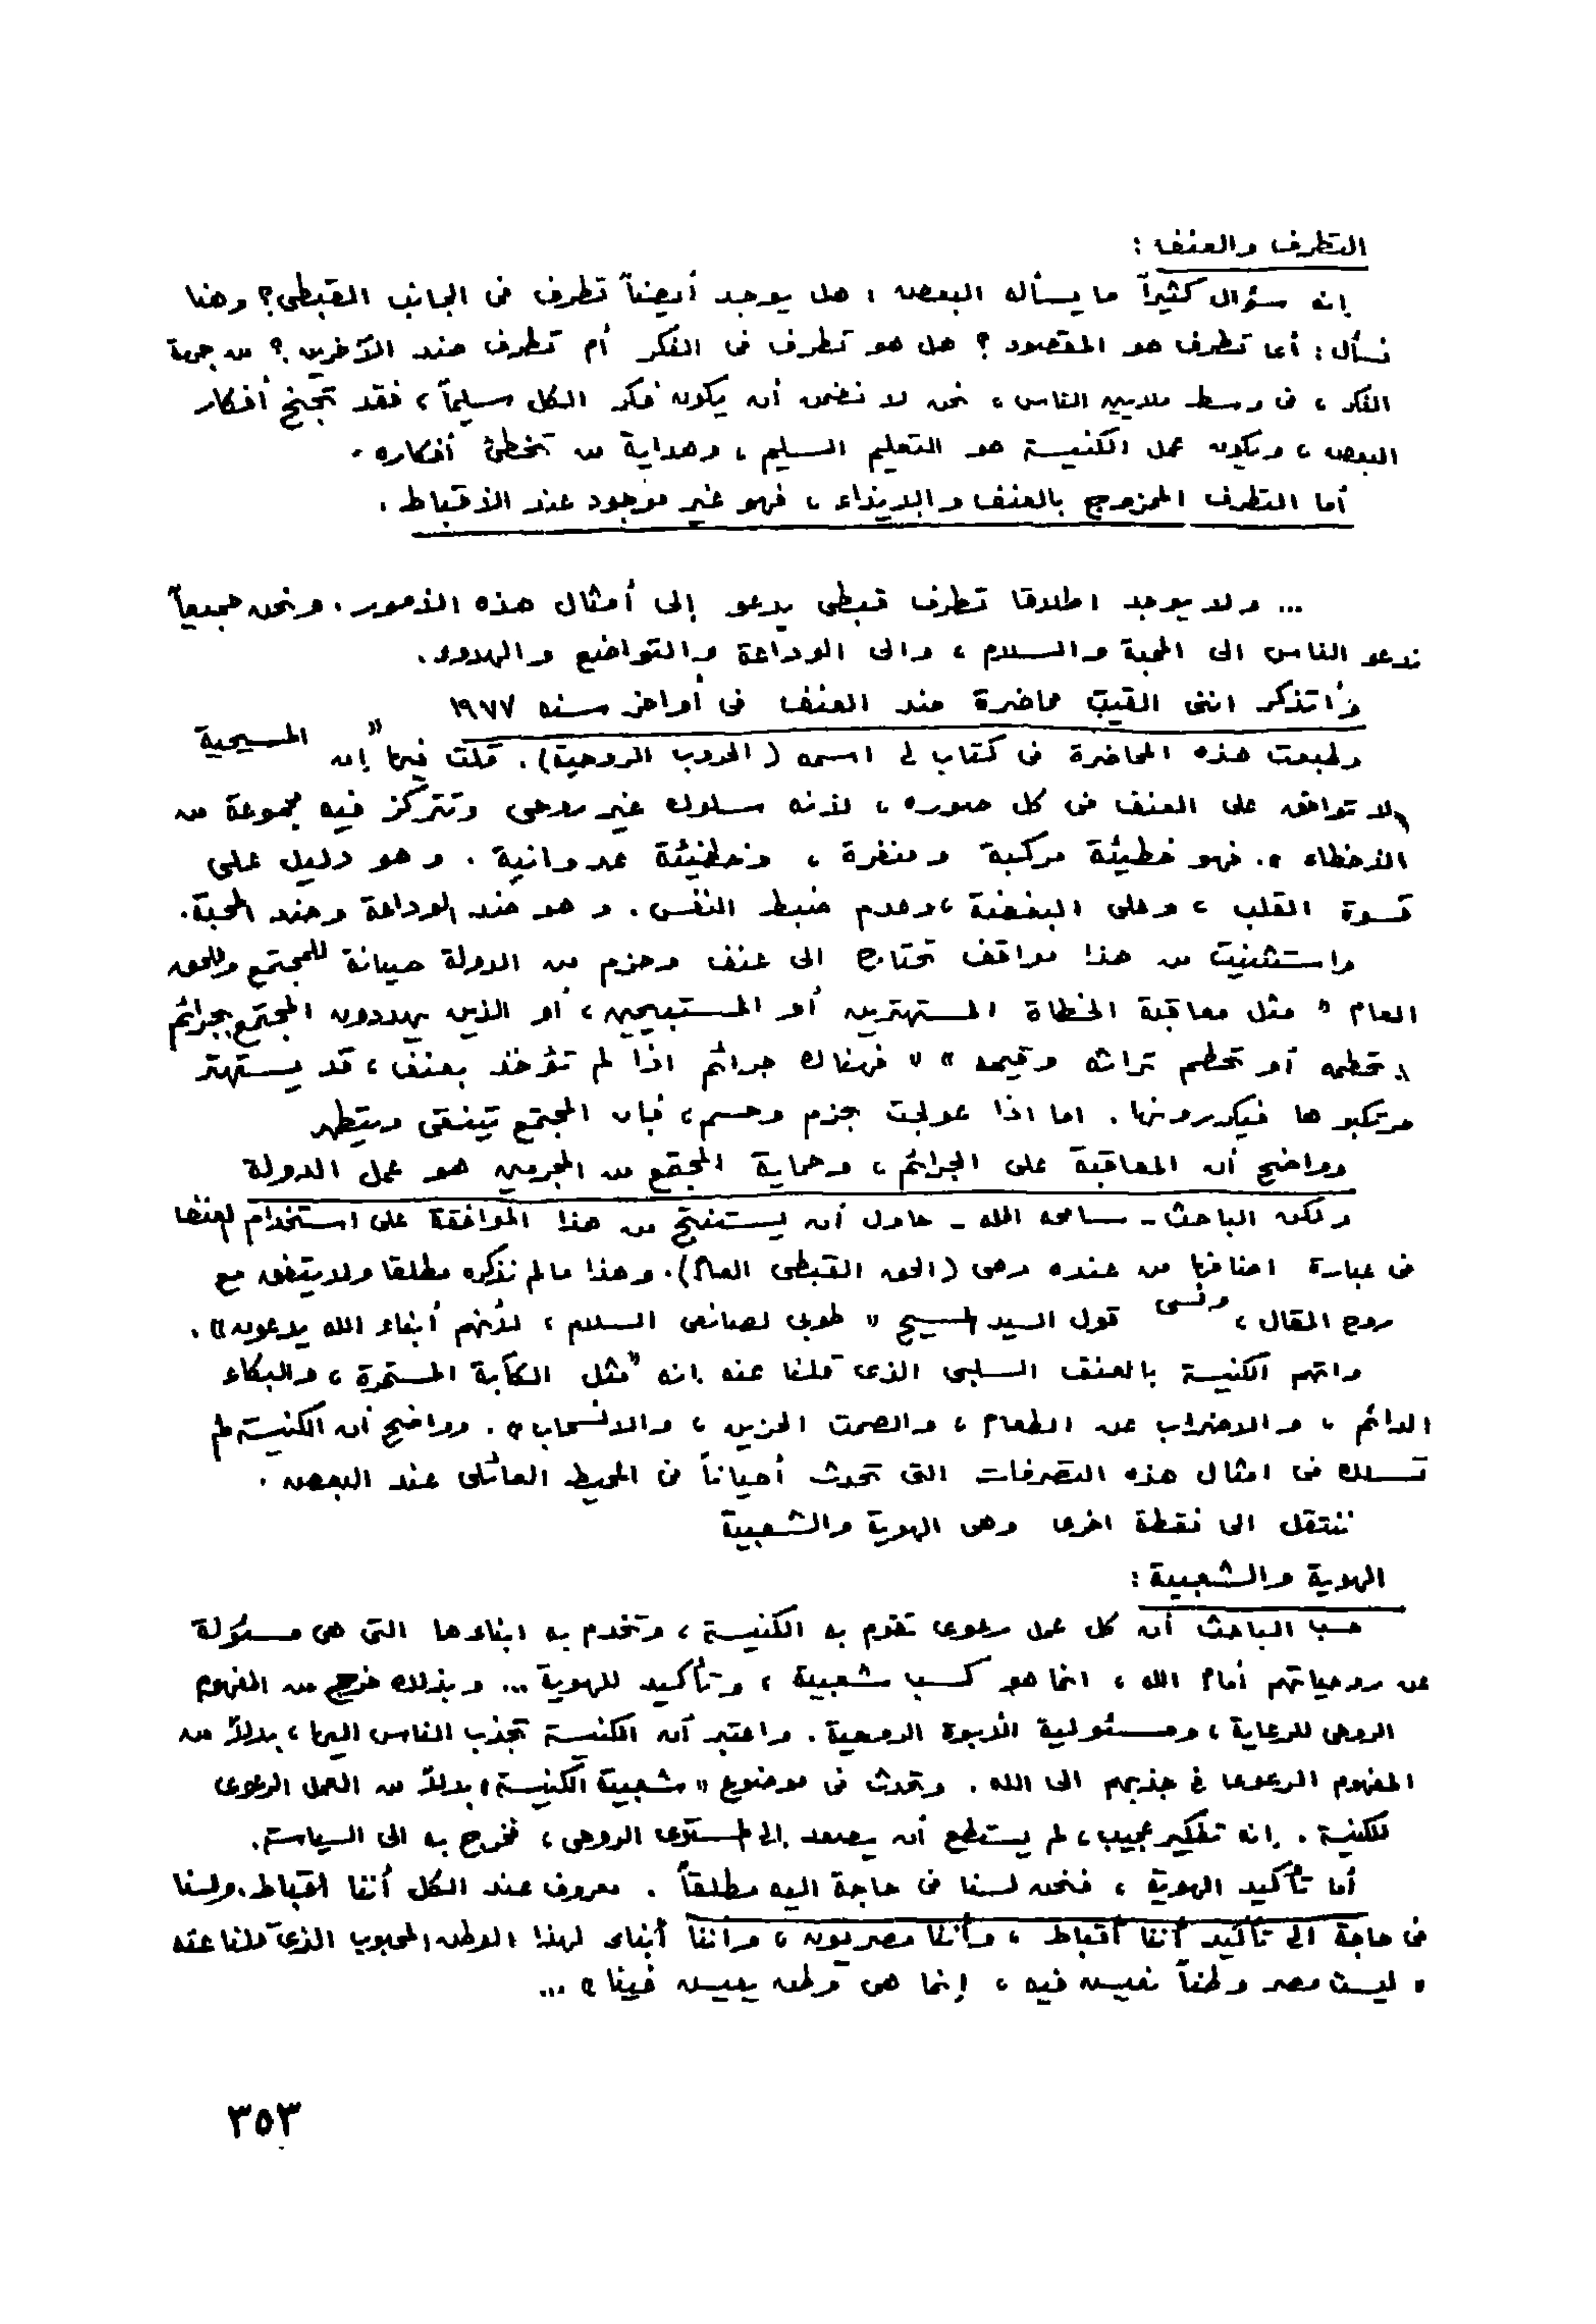 التطرف والعنف :
إنه سؤال كثيراً ما يسأله البعض : هل يوجد أيضاً تطرف فى الجانب القبطى ؟ وهنا
نسأل : أى تطرف هو المقصود ؟ هل هو تطرف فى الفكر أم تطرف ضد الآخرين ؟ من جهة
الفكر ، فى وسط ملايين الناس ، نحن لا نضمن أن يكون فكر الكل سليماً ، فقد تجنح أفكار
البعض ، ويكون عمل الكنيسة هو التعليم السليم ، وهداية من تخطئ أفكاره .
أما التطرف الممزوج بالعنف والإيذاء ، فهو غير موجود عند الأقباط .
... ولا يوجد اطلاقا تطرف قبطى يدعو إلى أمثال هذه الأمور . ونحن جميعاً
ندعو الناس الى المحبة والسلام ، والى الوداعة والتواضع والهدوء .
وأتذكر اننى القيت محاضرة ضد العنف فى أواخر سنه ١٩٧٧
وطبعت هذه المحاضرة فى كتاب لى اسمه ( الحروب الروحية ) . قلت فيها " إن المسيحية
لا توافق على العنف فى كل صوره ، لأنه سلوك غير روحى وتتركز فيه مجموعة من
الأخطاء » . فهو خطيئة مركبة ومنفرة ، وخطيئة عدوانية . وهو دليل على
قسوة القلب ، وعلى البغضة ، وعدم ضبط النفس . وهو ضد الوداعة وضد المحبة .
واستثنيت من هذا مواقف تحتاج الى عنف وحزم من الدولة صيانة للمجتمع وللحق
العام " مثل معاقبة الخطاة المستهترين أو المستبيحين ، أو الذين يهددون المجتمع بجرائم
تحطمه أو تحطم تراثه وقيمه » « فهناك جرائم اذا لم تؤخذ بعنف ، قد يستهتر
مرتكبوها فيكررونها . اما اذا عولجت بحزم وحسم ، فإن المجتمع يتنقى ويتطهر
وواضح أن المعاقبة على الجرائم ، وحماية المجتمع من المجرمين هو عمل الدولة
ولكن الباحث - سامحه الله - حاول أن يستنتج من هذا الموافقة على استخدام العنف
فى عبارة اضافها من عنده وهى ( الحق القبطى العام ) . وهذا ما لم نذكره مطلقا ولا يتفق مع
روح المقال ، ونسى قول السيد المسيح « طوبى لصانعى السلام ، لأنهم أبناء الله يدعون » .
واتهم الكنيسة بالعنف السلبى الذى قلنا عنه إنه "مثل الكآبة المستمرة ، والبكاء
الدائم ، والاضراب عن الطعام ، والصمت الحزين ، والانسحاب » . وواضح أن الكنيسة لم
تسلك فى امثال هذه التصرفات التى تحدث أحياناً فى المحيط العائلى عند البعض .
ننتقل الى نقطة اخرى وهى الهوية والشعبية
الهوية والشعبية :
حسب الباحث أن كل عمل رعوى تقوم به الكنيسة ، وتخدم به ابناءها التى هى مسئولة
عن روحياتهم أمام الله ، انما هو كسب شعبية ، وتأكيد للهوية ... وبذلك خرج من المفهوم
الروحى للرعاية ، ومسئولية الأبوة الروحية . واعتبر أن الكنيسة تجذب الناس اليها ، بدلاً من
المفهوم الرعوى فى جذبهم الى الله . وتحدث فى موضوع « شعبية الكنيسة » بدلاً من العمل الرعوى
للكنيسة . إنه تفكير عجيب ، لم يستطع أن يصعد إلى المستوى الروحى ، فخرج به الى السياسة .
أما تأكيد الهوية ، فنحن لسنا فى حاجة اليه مطلقاً . معروف عند الكل أننا أقباط . ولسنا
فى حاجة الى تأكيد أننا أقباط ، وأننا مصريون ، وأننا أبناء لهذا الوطن المحبوب الذى قلنا عنه
« ليست مصر وطناً نعيش فيه ، إنما هى وطن يعيش فينا » ...
٣٥٣